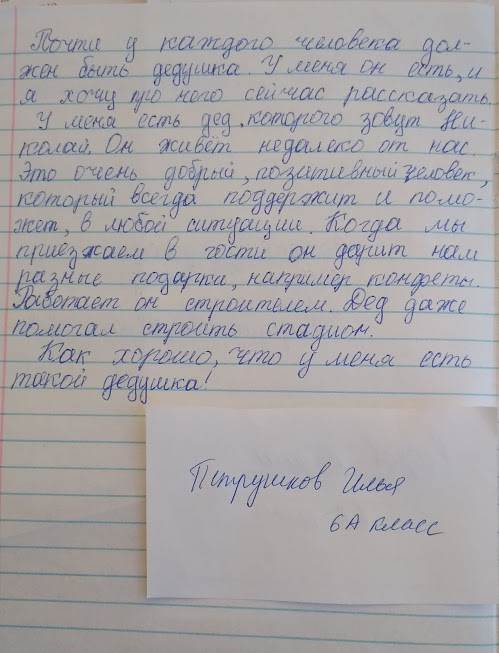 Почти у каждого человека дол-
жен быть дедушка. У меня он есть, и
я хочу про него сейчас рассказать.
У меня есть дед, которого зовут Ни-
колай. Он живёт недалеко от нас.
Это очень добрый, позитивный человек,
который всегда поддержит и помо-
жет, в любой ситуации. Когда мы
приезжаем в гости он дарит нам
разные подарки, например конфеты.
Работает он строителем. Дед даже
помогал строить стадион.
Как хорошо, что у меня есть
такой дедушка!
Петрушков Илья
6А класс